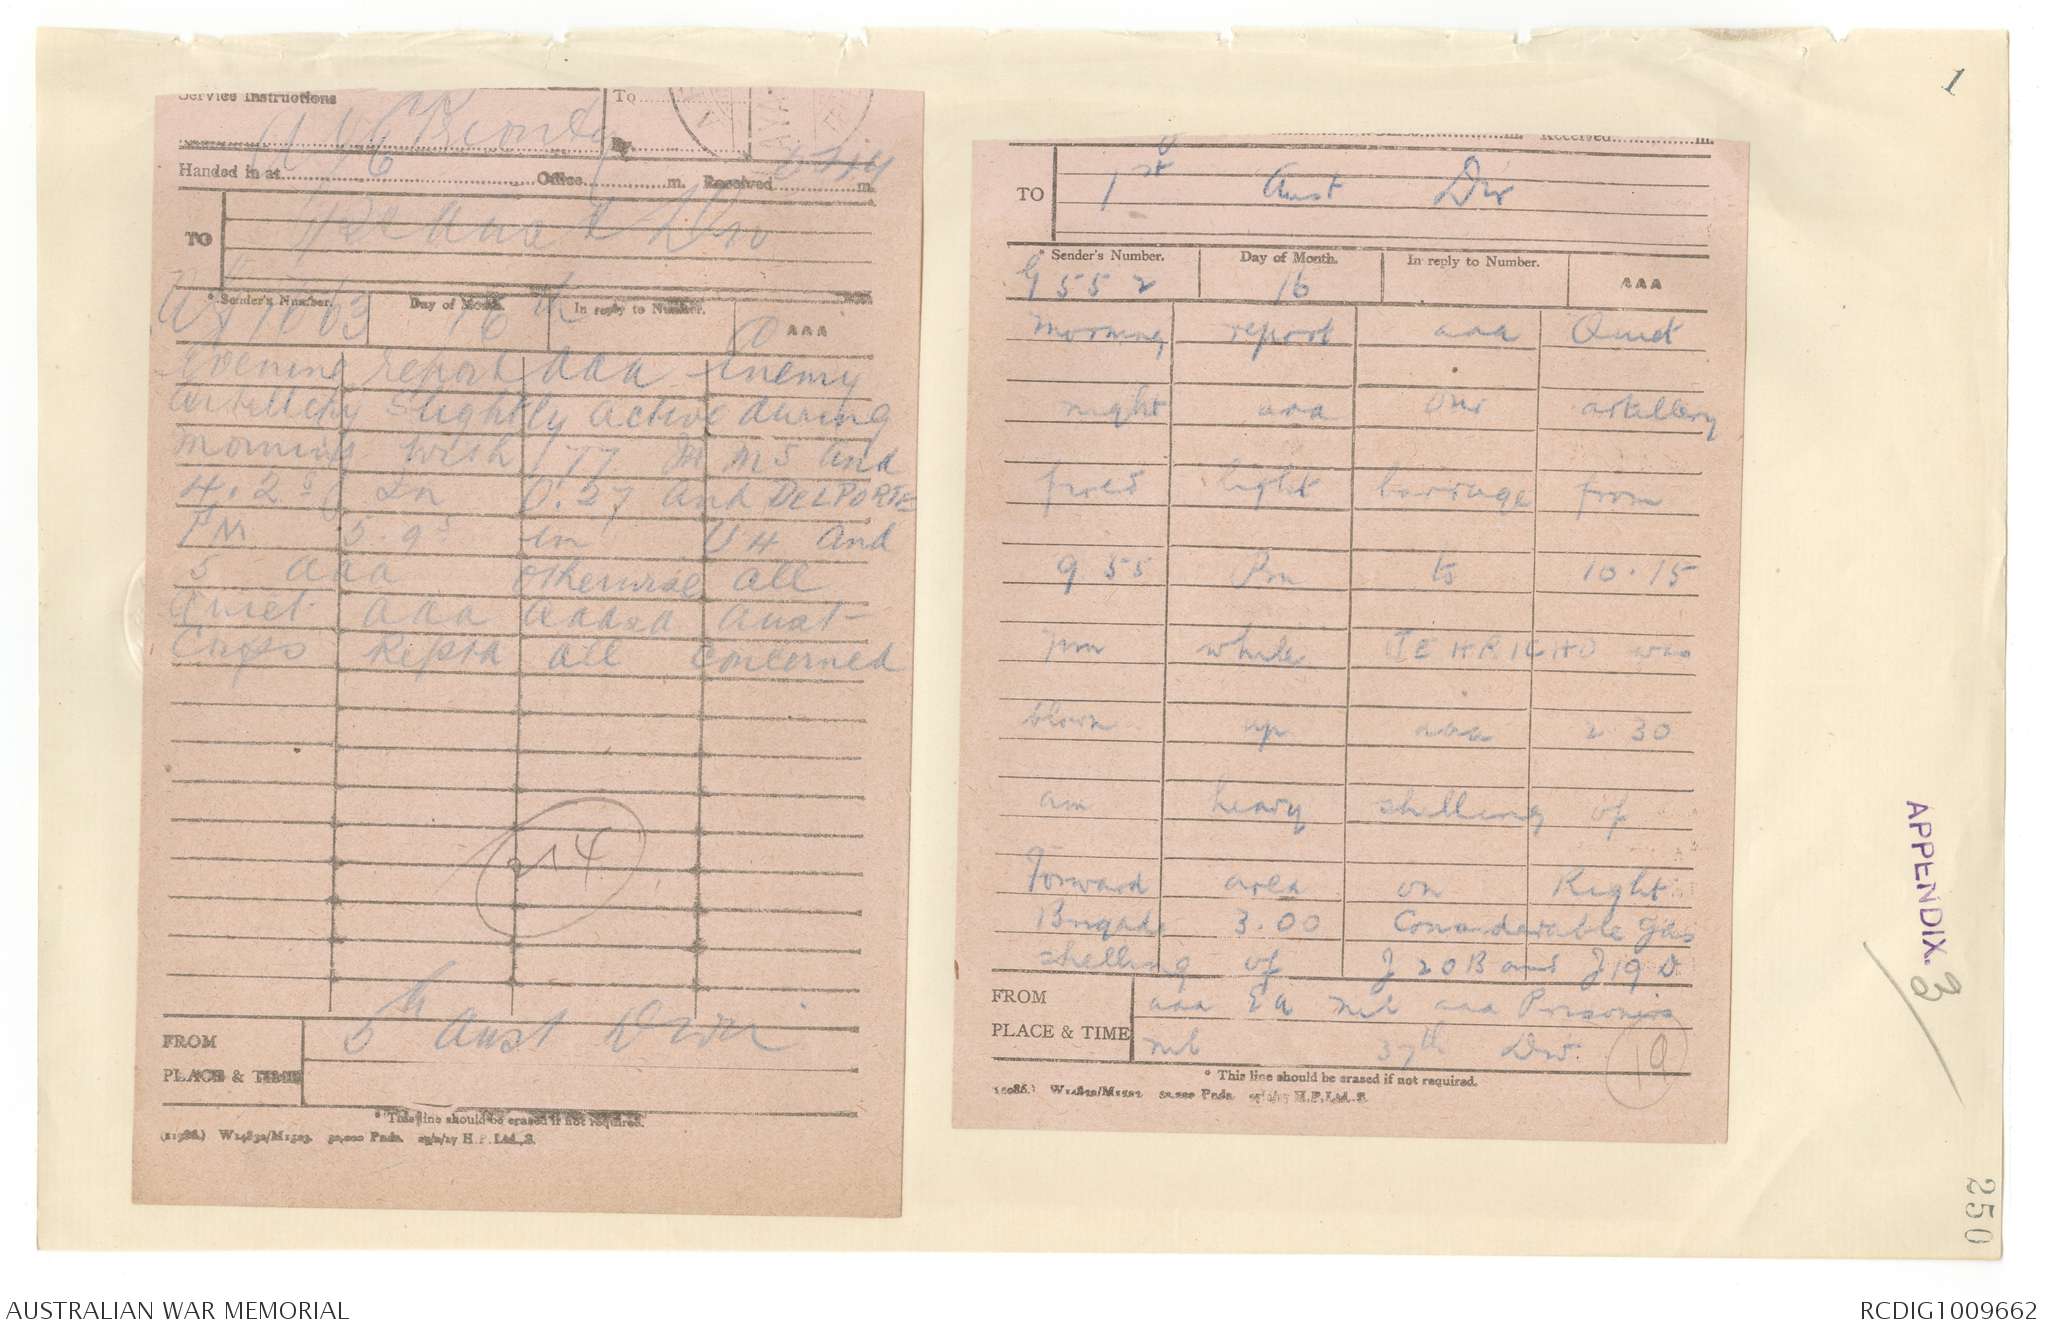 1
Service Instructions
To
By
Handed in at Office m. Received m.
TO Aust Div
* Sender's Number. Day of Month. In reply to Number. AAA
1663 16th
Evening report aaa Enemy
artillery slightly active during
morning with 77 M Ms and
4.2s in O.27 and DELPORTE
FM 5.9s in U 4 and
5 aaa otherwise all
quiet aaa Aust
Corps Reptd all concerned
214
FROM
PLACE & TIME
5th Aust Divn
* This line should be erased if not required.
50,000 Pads. H.P. Ltd., S.
m. Received m.
TO 1st Aust Div
* Sender's Number. Day of Month. In reply to Number. AAA
G 552 16
Morning report aaa Quiet
night aaa our artillery
fired light barrage from
9 55 Pm to 10.15
pm while JEHRICHO was
blown up aaa 2 30
am heavy shelling of
Forward area on Right
Brigade 3.00 Considerable gas
shelling of J 20 B and J 19 D
aaa E A nil aaa Prisoners
nil 37th Div.
FROM
PLACE & TIME
19
* This line should be erased if not required.
H.P. Ltd., S.
APPENDIX. 3
250
AUSTRALIAN WAR MEMORIAL
RCDIG1009662